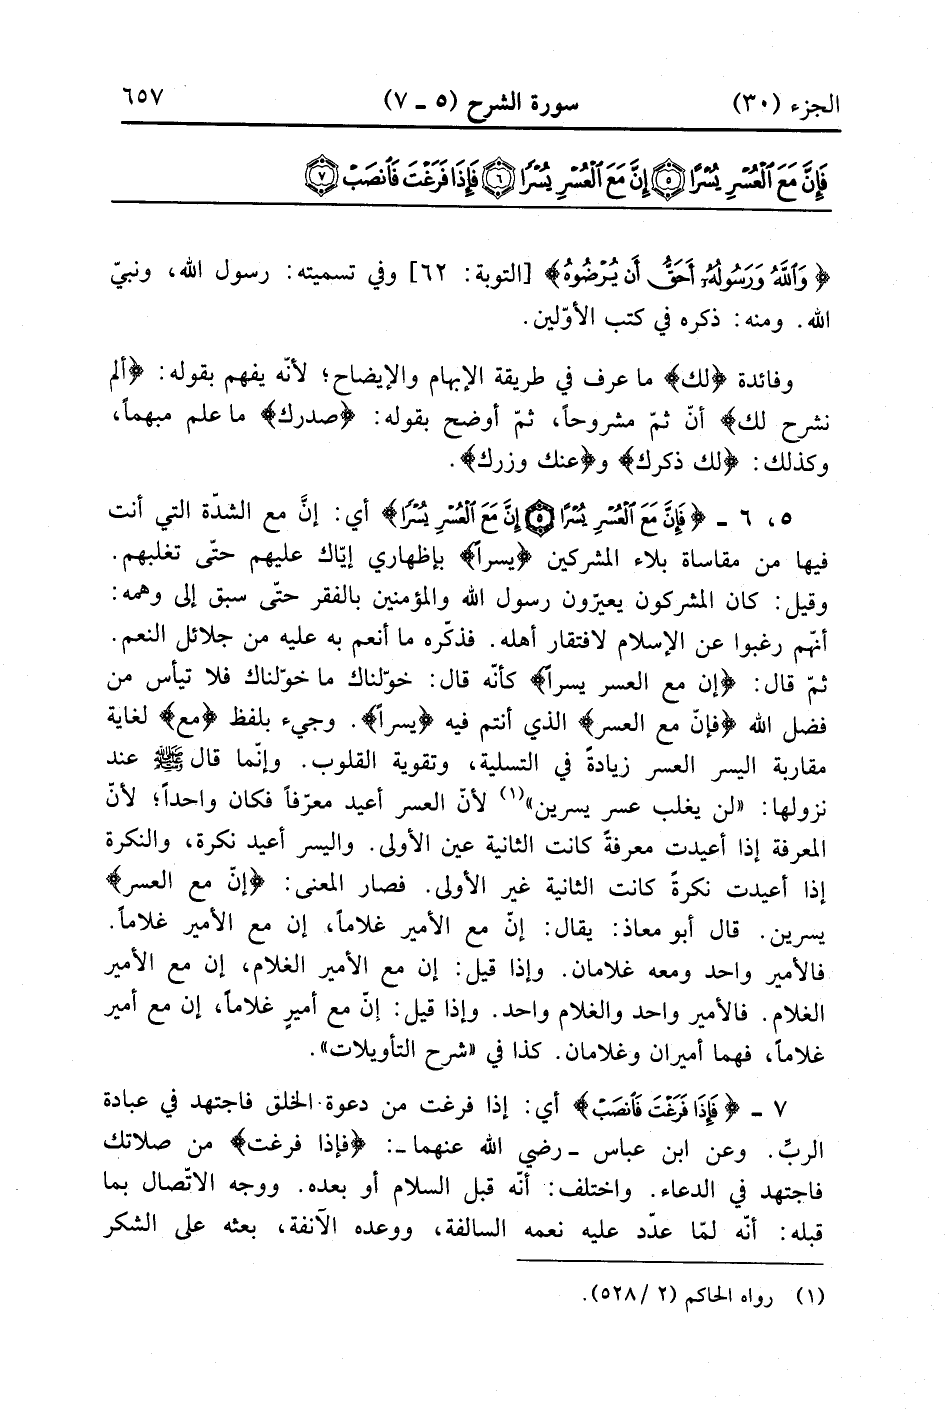 الجزء (٣٠) سورة الشرح (٥ ـ ٧) ٦٥٧
فَإِنَّ مَعَ ٱلْعُسْرِ يُسْرًا ٥ إِنَّ مَعَ ٱلْعُسْرِ يُسْرًا ٦ فَإِذَا فَرَغْتَ فَٱنصَبْ ٧
﴿ وَٱللَّهُ وَرَسُولُهُۥ أَحَقُّ أَن يُرْضُوهُ﴾ [التوبة: ٦٢] وفي تسميته: رسول الله، ونبيّ
الله. ومنه: ذكره في كتب الأوّلين.
وفائدة ﴿لك﴾ ما عرف في طريقة الإبهام والإيضاح؛ لأنّه يفهم بقوله: ﴿ألم
نشرح لك﴾ أنّ ثمّ مشروحاً، ثمّ أوضح بقوله: ﴿صدرك﴾ ما علم مبهماً،
وكذلك: ﴿لك ذكرك﴾ و﴿عنك وزرك﴾.
٥، ٦ ـ ﴿فَإِنَّ مَعَ ٱلْعُسْرِ يُسْرًا ٥ إِنَّ مَعَ ٱلْعُسْرِ يُسْرًا﴾ أي: إنَّ مع الشدّة التي أنت
فيها من مقاساة بلاء المشركين ﴿يسراً﴾ بإظهاري إيّاك عليهم حتّى تغلبهم.
وقيل: كان المشركون يعيّرون رسول الله والمؤمنين بالفقر حتّى سبق إلى وهمه:
أنّهم رغبوا عن الإسلام لافتقار أهله. فذكّره ما أنعم به عليه من جلائل النعم.
ثمّ قال: ﴿إن مع العسر يسراً﴾ كأنّه قال: خوّلناك ما خوّلناك فلا تيأس من
فضل الله ﴿فإنّ مع العسر﴾ الذي أنتم فيه ﴿يسراً﴾. وجيء بلفظ ﴿مع﴾ لغاية
مقاربة اليسر العسر زيادةً في التسلية، وتقوية القلوب. وإنّما قال ﷺ عند
نزولها: «لن يغلب عسر يسرين»(١) لأنّ العسر أعيد معرّفاً فكان واحداً؛ لأنّ
المعرفة إذا أعيدت معرفةً كانت الثانية عين الأولى. واليسر أعيد نكرة، والنكرة
إذا أعيدت نكرةً كانت الثانية غير الأولى. فصار المعنى: ﴿إنّ مع العسر﴾
يسرين. قال أبو معاذ: يقال: إنّ مع الأمير غلاماً، إن مع الأمير غلاماً.
فالأمير واحد ومعه غلامان. وإذا قيل: إن مع الأمير الغلام، إن مع الأمير
الغلام. فالأمير واحد والغلام واحد. وإذا قيل: إنّ مع أميرٍ غلاماً، إن مع أمير
غلاماً، فهما أميران وغلامان. كذا في «شرح التأويلات».
٧ ـ ﴿ فَإِذَا فَرَغْتَ فَٱنصَبْ﴾ أي: إذا فرغت من دعوة الخلق فاجتهد في عبادة
الربِّ. وعن ابن عباس ـ رضي الله عنهما ـ: ﴿فإذا فرغت﴾ من صلاتك
فاجتهد في الدعاء. واختلف: أنّه قبل السلام أو بعده. ووجه الاتّصال بما
قبله: أنّه لمّا عدّد عليه نعمه السالفة، ووعده الآنفة، بعثه على الشكر
(١) رواه الحاكم (٢/ ٥٢٨).